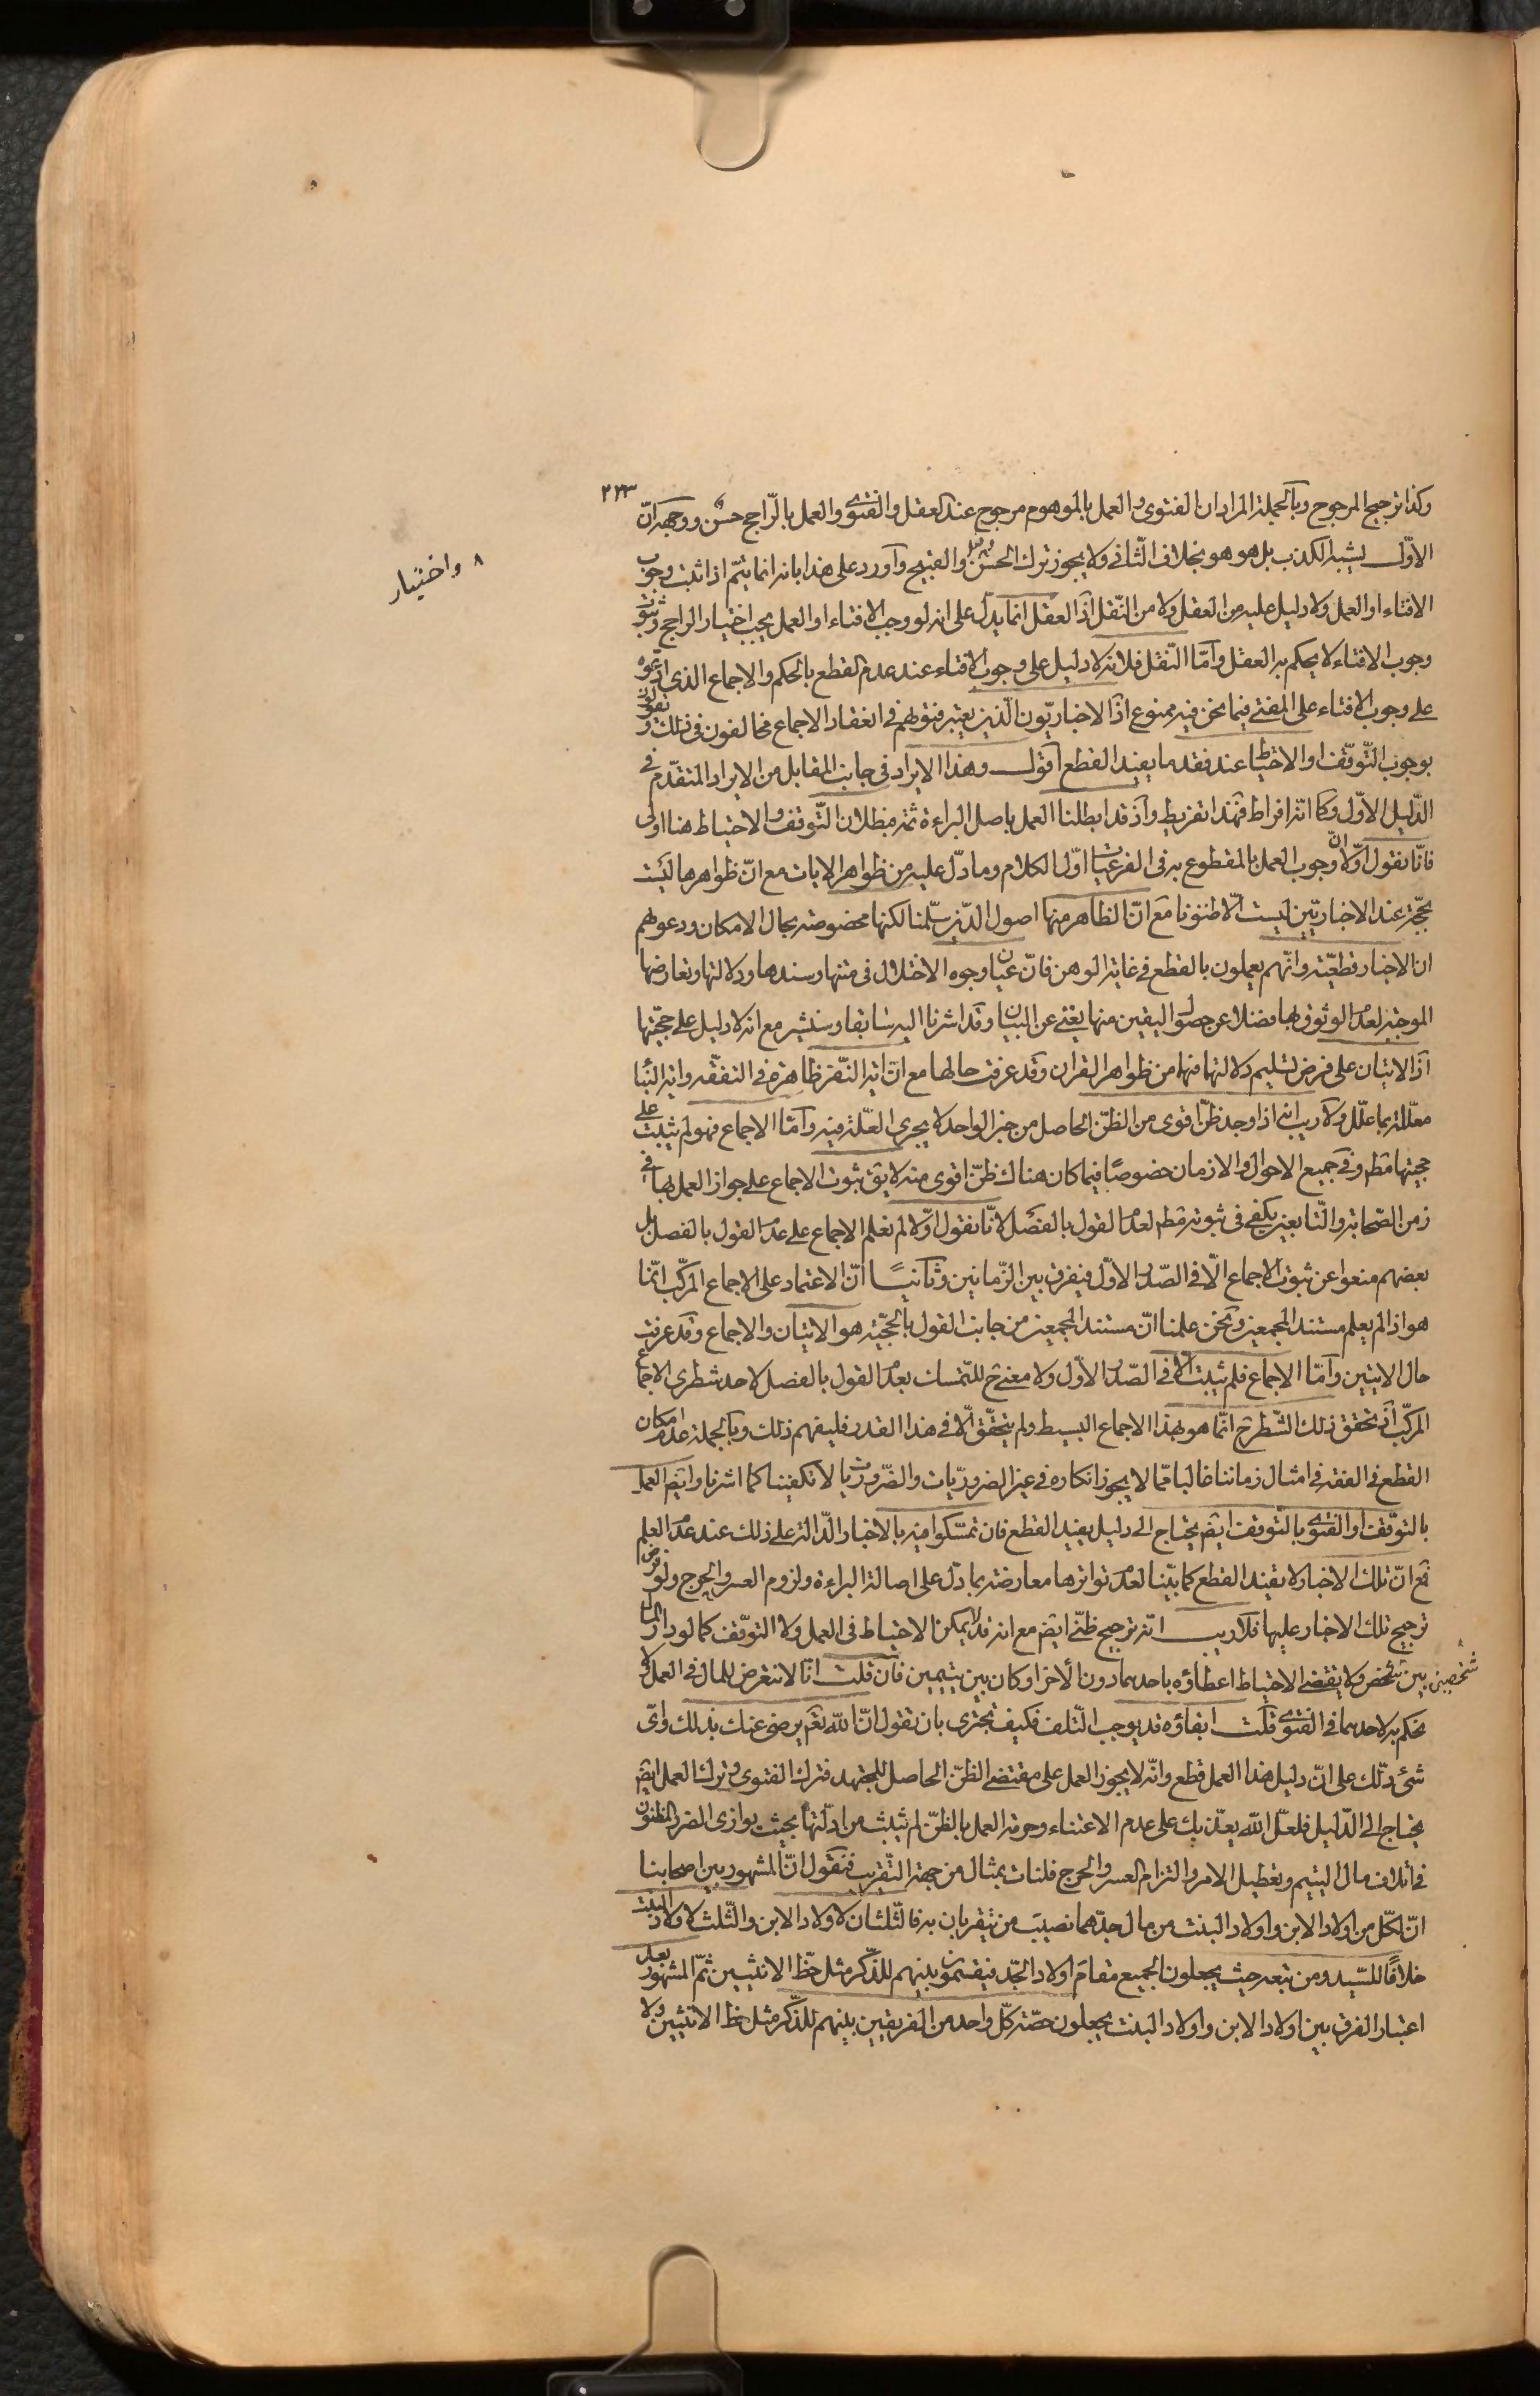 ٢٢٣
وكذا ترجيح المرجوح وبالجملة المراد ان الفتوى والعمل بالموهوم مرجوح عند العقل والفتوى والعمل بالرّاجح حسن ووجهه انّ
الاوّل يشبه الكذب بل هو هو بخلاف الثّانى ولا يجوز ترك الحسن والقبيح وآورد على هذا بانه انما يتمّ اذا ثبت وجوب
٨ واختيار
الافتاء او العمل ولا دليل عليه من العقل ولا من النّقل اذ العقل انما يدلّ على انه لو وجب الافتاء او العمل يجب اختيار الراجح وثبوت
وجوب الافتاء لا يحكم به العقل وآمّا النّقل فلانه لا دليل على وجوب الافتاء عند عدم القطع بالحكم والاجماع الذى ادّعوه
على وجوب الافتاء على المفتى فيما نحن فيه ممنوع اذ الاخباريّون الّذين يعتبر فتوٰهم فى انعقاد الاجماع مخالفون فى ذلك ويقولون
بوجوب التّوقّف او الاحتياط عند فقد ما يفيد القطع آقول وهذا الايراد فى جانب المقابل من الايراد المتقدّم فى
الدّليل الاوّل وكما انّه افراط فهٰذا تفريط وآذ قد ابطلنا العمل باصل البراءة ثمّه فبطلان التّوقف والاحتياط هنا اولى
فانّا نقول اوّلا انّ وجوب العمل بالمقطوع به فى الفرعيّات اوّل الكلام وما دلّ عليه من ظواهر الايات مع انّ ظواهرها ليست
بحجّة عند الاخباريّين ليست الّا ظنونا مع انّ الظاهر منها اصول الدّين سلّمنا لكنها مخصوصة بحال الامكان ودعوٰهم
ان الاخبار قطعيّة وانّهم يعملون بالقطع فى غاية الوهن فانّ عيان وجوه الاختلال فى متنها وسندها ودلالتها وتعارضها
الموجبة لعدم الوثوق بها فضلا عن حصول اليقين منها يغنى عن البيان وقد اشرنا اليه سابقا وسنشير مع انه لا دليل على حجّيتها
آذ الايتان على فرض تسليم دلالتها فهما من ظواهر القران وقد عرفت حالها مع انّ اية النّفر ظاهرة فى التفقّه واية النّبأ
معلّلة بما علّل ولا ريب انه اذا وجد ظنّ اقوى من الظنّ الحاصل من خبر الواحد لا يجرى العلّة فيه وآمّا الاجماع فهو لم يثبت على
حجّيتها مطم وفى جميع الاحوال والازمان خصوصًا فيما كان هناك ظنّ اقوى منه لا يق ثبوت الاجماع على جواز العمل بها فى
زمن الصّحابة والتّابعين يكفى فى ثبوته مطم لعدم القول بالفصل لانّا نقول اوّلا لم نعلم الاجماع على عدم القول بالفصل بل
بعضهم منعوا عن ثبوت الاجماع الّا فى الصّدر الاوّل فيفرق بين الزّمانين وثآنيًا انّ الاعتماد على الاجماع المركّب انّما
هو اذا لم يعلم مستند المجمعين ونحن علمنا انّ مستند المجمعين من جانب القول بالحجّية هو الايتان والاجماع وقد عرفت
حال الايتين وآمّا الاجماع فلم يثبت الّا فى الصّدر الاوّل ولا معنى ح للتّمسك بعدم القول بالفصل لاحد شطرى الاجماع
المركّب اذ تحقق ذلك الشّطر ح انّما هو بهذا الاجماع البسيط ولم يتحقّق الّا فى هذا القدر فليفهم ذلك وبآلجملة عدم امكان
القطع فى الفقه فى امثال زماننا غالبا ممّا لا يجوز انكاره فى غير الضروريّات والضّروريات لا تكفينا كما اشرنا وايضم العمل
بالتوقّف او الفتوى بالتّوقف ايضم يحتاج الى دليل يفيد القطع فان تمسّكوا فيه بالاخبار الدّالة على ذلك عند عدم العلم
فمع انّ تلك الاخبار لا يفيد القطع كما بيّنا لعدم تواترها معارضة بما دلّ على اصالة البراءة ولزوم العسر والحرج ولو فرض
ترجيح تلك الاخبار عليها فلا ريب انّه ترجيح ظنّى ايضم مع انه قد لا يمكن الاحتياط فى العمل ولا التوقّف كما لو دار المال
٨ شخصين
بين شخص ولا يقتضى الاحتياط اعطاؤه باحدهما دون الاخر او كان بين يتيمين فان قلت انّا لا نتعرض للمال فى العمل ولا
نحكم به لاحدهما فى الفتوى قلت ابقاؤه قد يوجب التّلف فكيف تجترى بان تقول انّ اللّه تعم يرضى عنك بذلك واىّ
شئ دلّك على انّ دليل هذا العمل قطع وانّه لا يجوز العمل على مقتضى الظنّ الحاصل للمجتهد فترك الفتوى وترك العمل ايضم
يحتاج الى الدّليل فلعلّ اللّه يعذّبك على عدم الاعتناء وحرمة العمل بالظنّ لم يثبت من ادلّتها بحيث يوازى الضرر المظنون
فى اتلاف مال اليتيم وتعطيل الامر والتزام العسر والحرج فلنات بمثال من جهة التّقريب فنقول انّ المشهور بين اصحابنا
انّ لكلّ من اولاد الابن واولاد البنت من مال جدّهما نصيب من يتقربان به فالثّلثان لاولاد الابن والثّلث لاولاد البنت
خلافًا للسّيد ومن تبعه حيث يجعلون الجميع مقام اولاد الجّد فيقتسمون بينهم للذّكر مثل حظّ الانثيين ثمّ المشهور بعد
اعتبار الفرق بين اولاد الابن واولاد البنت يجعلون حصّة كلّ واحد من الفريقين بينهم للذّكر مثل حظ الانثيين ولا